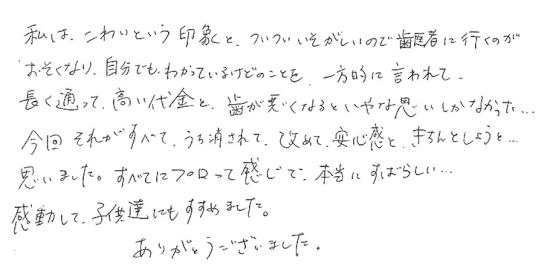 私は、こわいという印象と、ついついいそがしいので歯医者に行くのが
おそくなり、自分でもわかっているけどのことを、一方的に言われて、
長く通って、高い代金と、歯が悪くなるといやな思いしかなかった…
今回それがすべて、うち消されて、改めて、安心感と、きちんとしようと…
思いました。すべてにプロって感じで、本当にすばらしい…
感動して、子供達にもすすめました。
ありがとうございました。